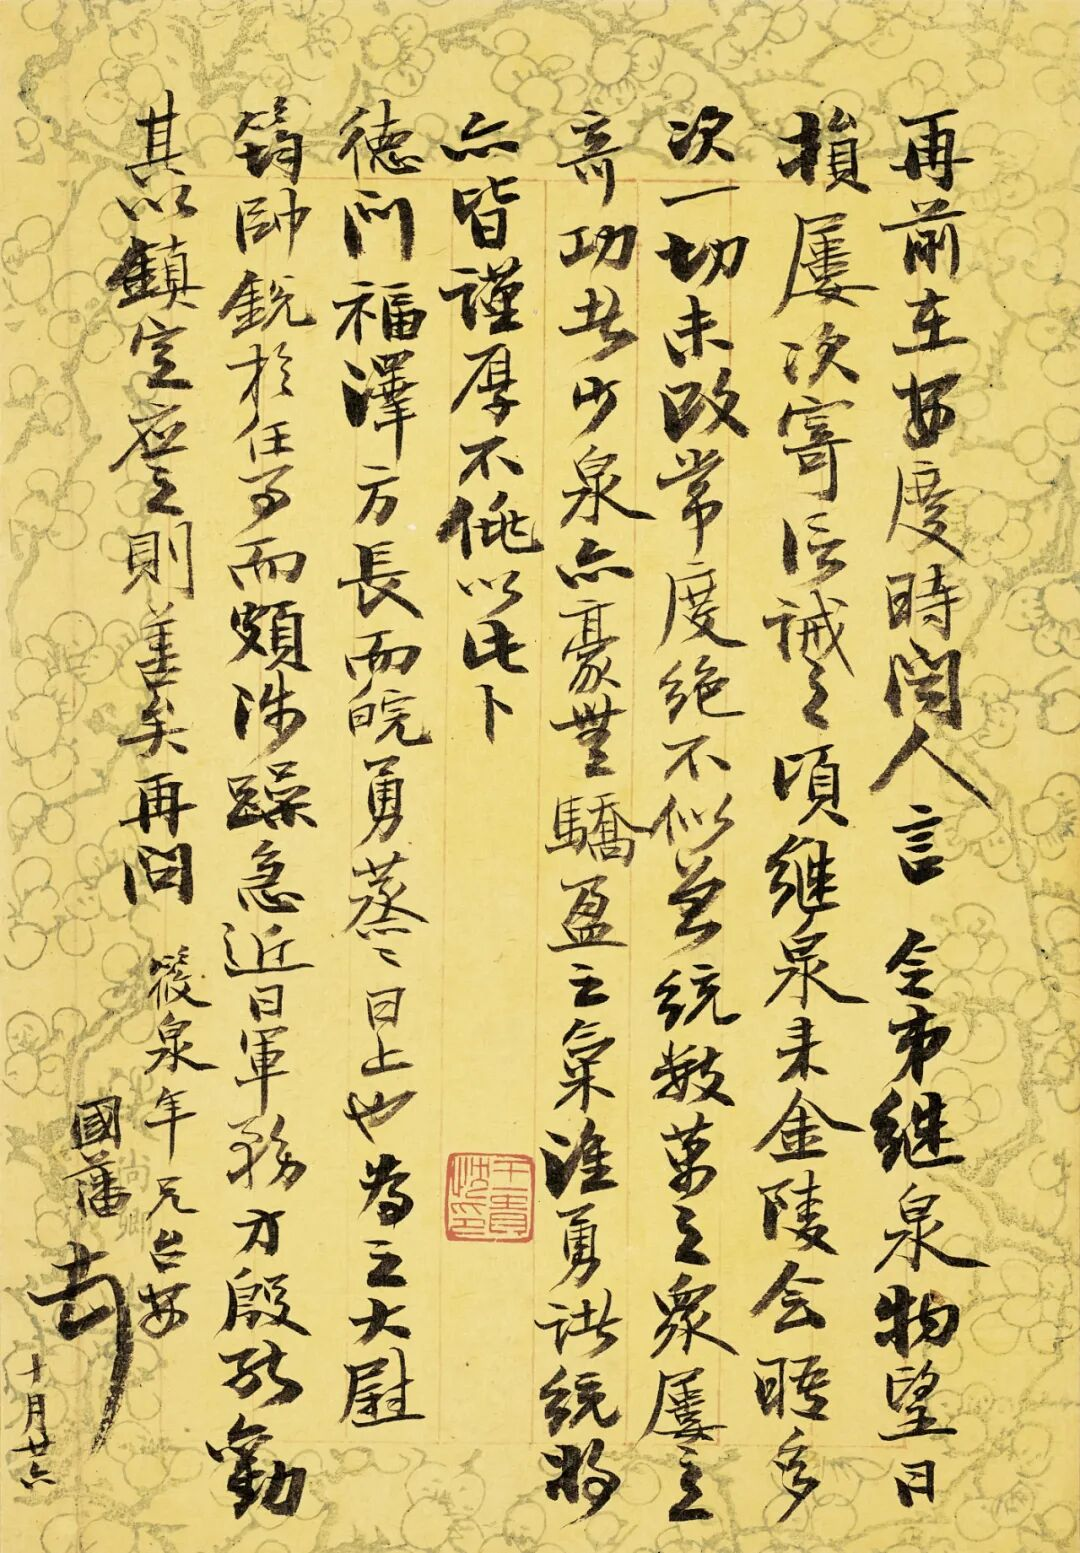 再前在安慶時聞人言 令弟繼泉物望日
損屢次寄信誡之頃繼泉来金陵会晤多
次一切未改常度絶不似曾統數萬之衆屢立
奇功者少泉亦豪無驕盈之氣淮勇諸統將
亦皆謹厚不佻以此卜
德門福澤方長而皖勇蒸〻日上也為之大慰
筠帥銳於任事而頗涉躁急近日軍務方殷能勸
其以鎮定應之則善矣再問
筱泉年兄台安
國藩 又頓
十月廿六